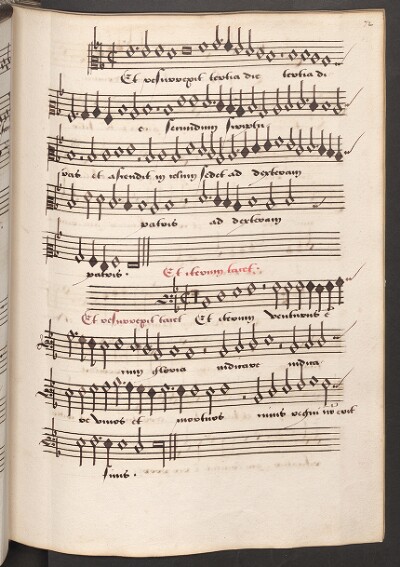 Et resurrexit tertia die tertia di
e. secundum scriptu
ras et ascendit in celum sedet ad dexteram
patris ad dexteram
patris.
Et iterum tacet.
Et resurrexit tacet Et iterum venturus ē
cum gloria iudicare iudica
re vivos et mortuos cuius regni nō erit
finis.